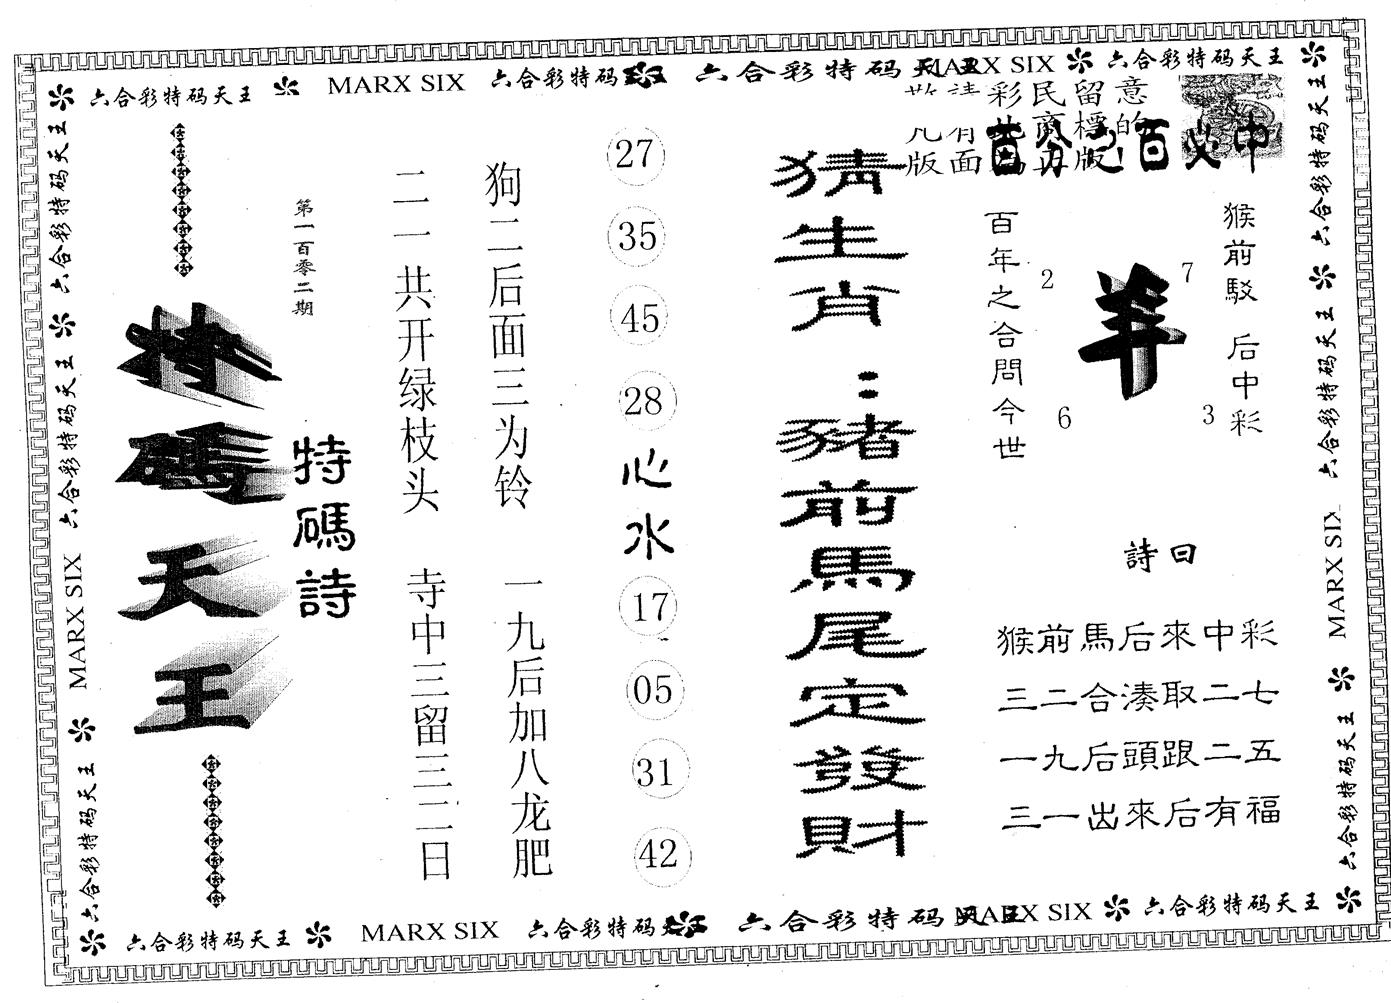 六合彩特码天王 MARX SIX 六合彩特码天王 六合彩特码天王 MARX SIX 六合彩特码天王
敬請彩民留意
凡有
版面 版!
百分之百必中
猴前駁 后中彩
羊
7
2
3
6
百年之合問今世
詩曰
猴前馬后來中彩
三二合湊取二七
一九后頭跟二五
三一出來后有福
猜生肖:豬前馬尾定發財
27
35
45
28
心水
17
05
31
42
狗二后面三为铃 一九后加八龙肥
二一共开绿枝头 寺中三留三二日
第一百零二期
特碼詩
特碼天王
六合彩特码天王 六合彩特码天王 MARX SIX 六合彩特码天王
六合彩特码天王 六合彩特码天王 MARX SIX 六合彩特码天王
六合彩特码天王 MARX SIX 六合彩特码天王 六合彩特码天王 MARX SIX 六合彩特码天王